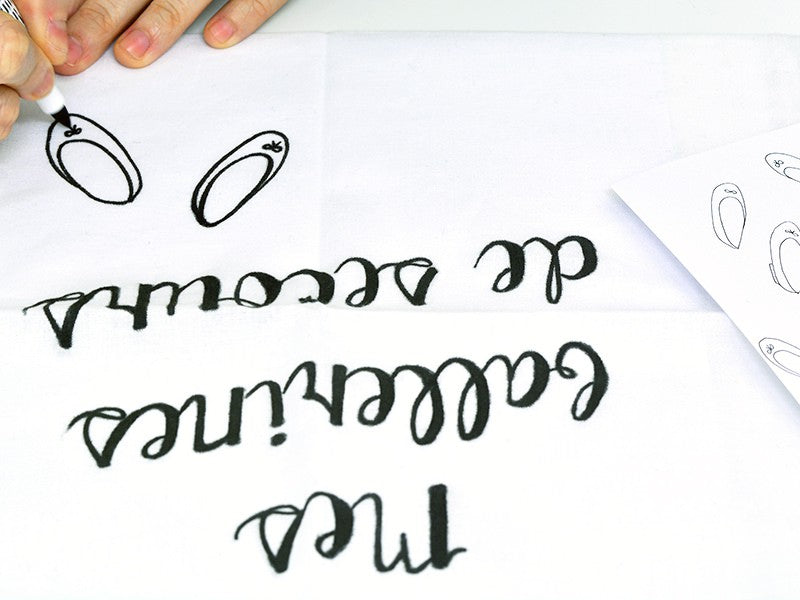 Mes
ballerines
de secours